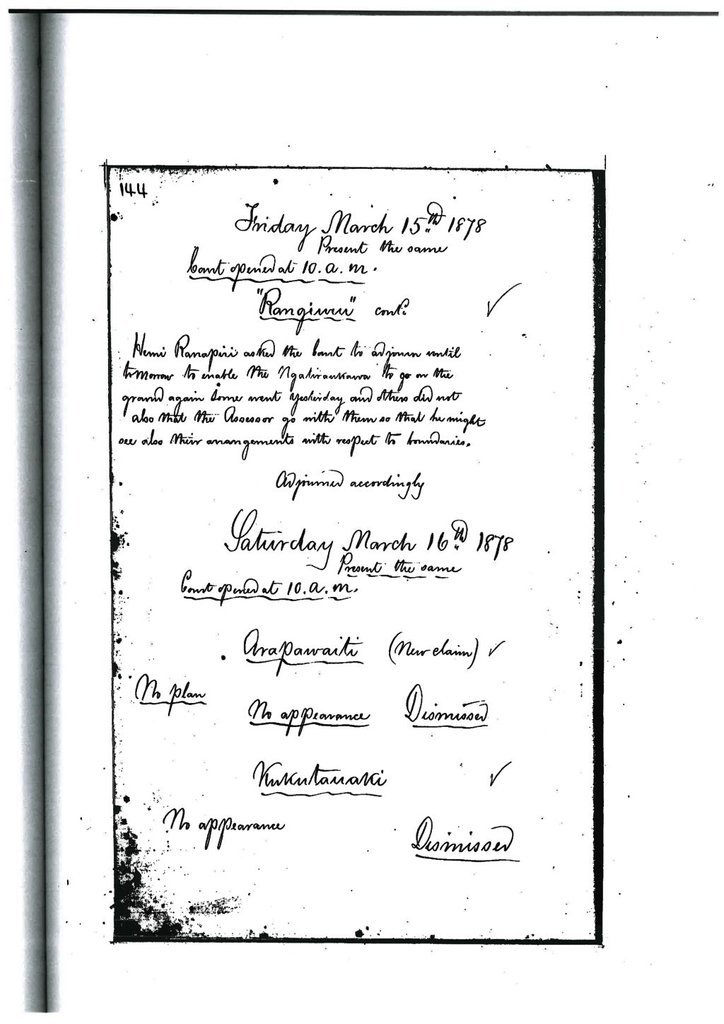 144
Friday March 15th 1878
Present the same
Court opened at 10.a.m.
"Rangiuru" cont. ✓
Hemi Ranapiri asked the Court to adjourn until
tomorrow to enable the Ngatiraukawa to go on the
ground again Some went yesterday and others did not
also that the Assessor go with them so that he might
see also their arrangements with respect to boundaries.
Adjourned accordingly
Saturday March 16th 1878
Present the same
Court opened at 10.a.m.
Arapawaiti (New claim) ✓
No plan
No appearance Dismissed
Kukutauaki ✓
No appearance
Dismissed